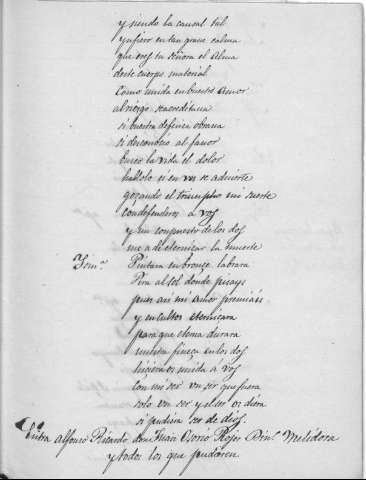 y siendo la causal tal
y nfiero en tan grave calma
que eres tu señora el Alma
deste cuerpo material
Como unida en buestro Amor
al riesgo
si buestra defensa obrara
si desconoce al favor
la vida el dolor
hallolo si en vos se advierte
gozando el triumpho mi suerte
con defenderos â vos
y un compuesto de los dos
me a de eternizar la muerte
Fem.ª Pintura en bronce labrara
Pira al sol donde pisays
pues asi mi amor premiáis
y en cultos eternizara
para que eterna durara
nuestra fineza en los dos
hiziera os unida â vos
con mi ser un ser que fuera
solo un ser y el ser os diera
si pudiera ser de dios.
Entra Alfonso Ricardo don Juan Osorio Melidora
y todos los que pudieren